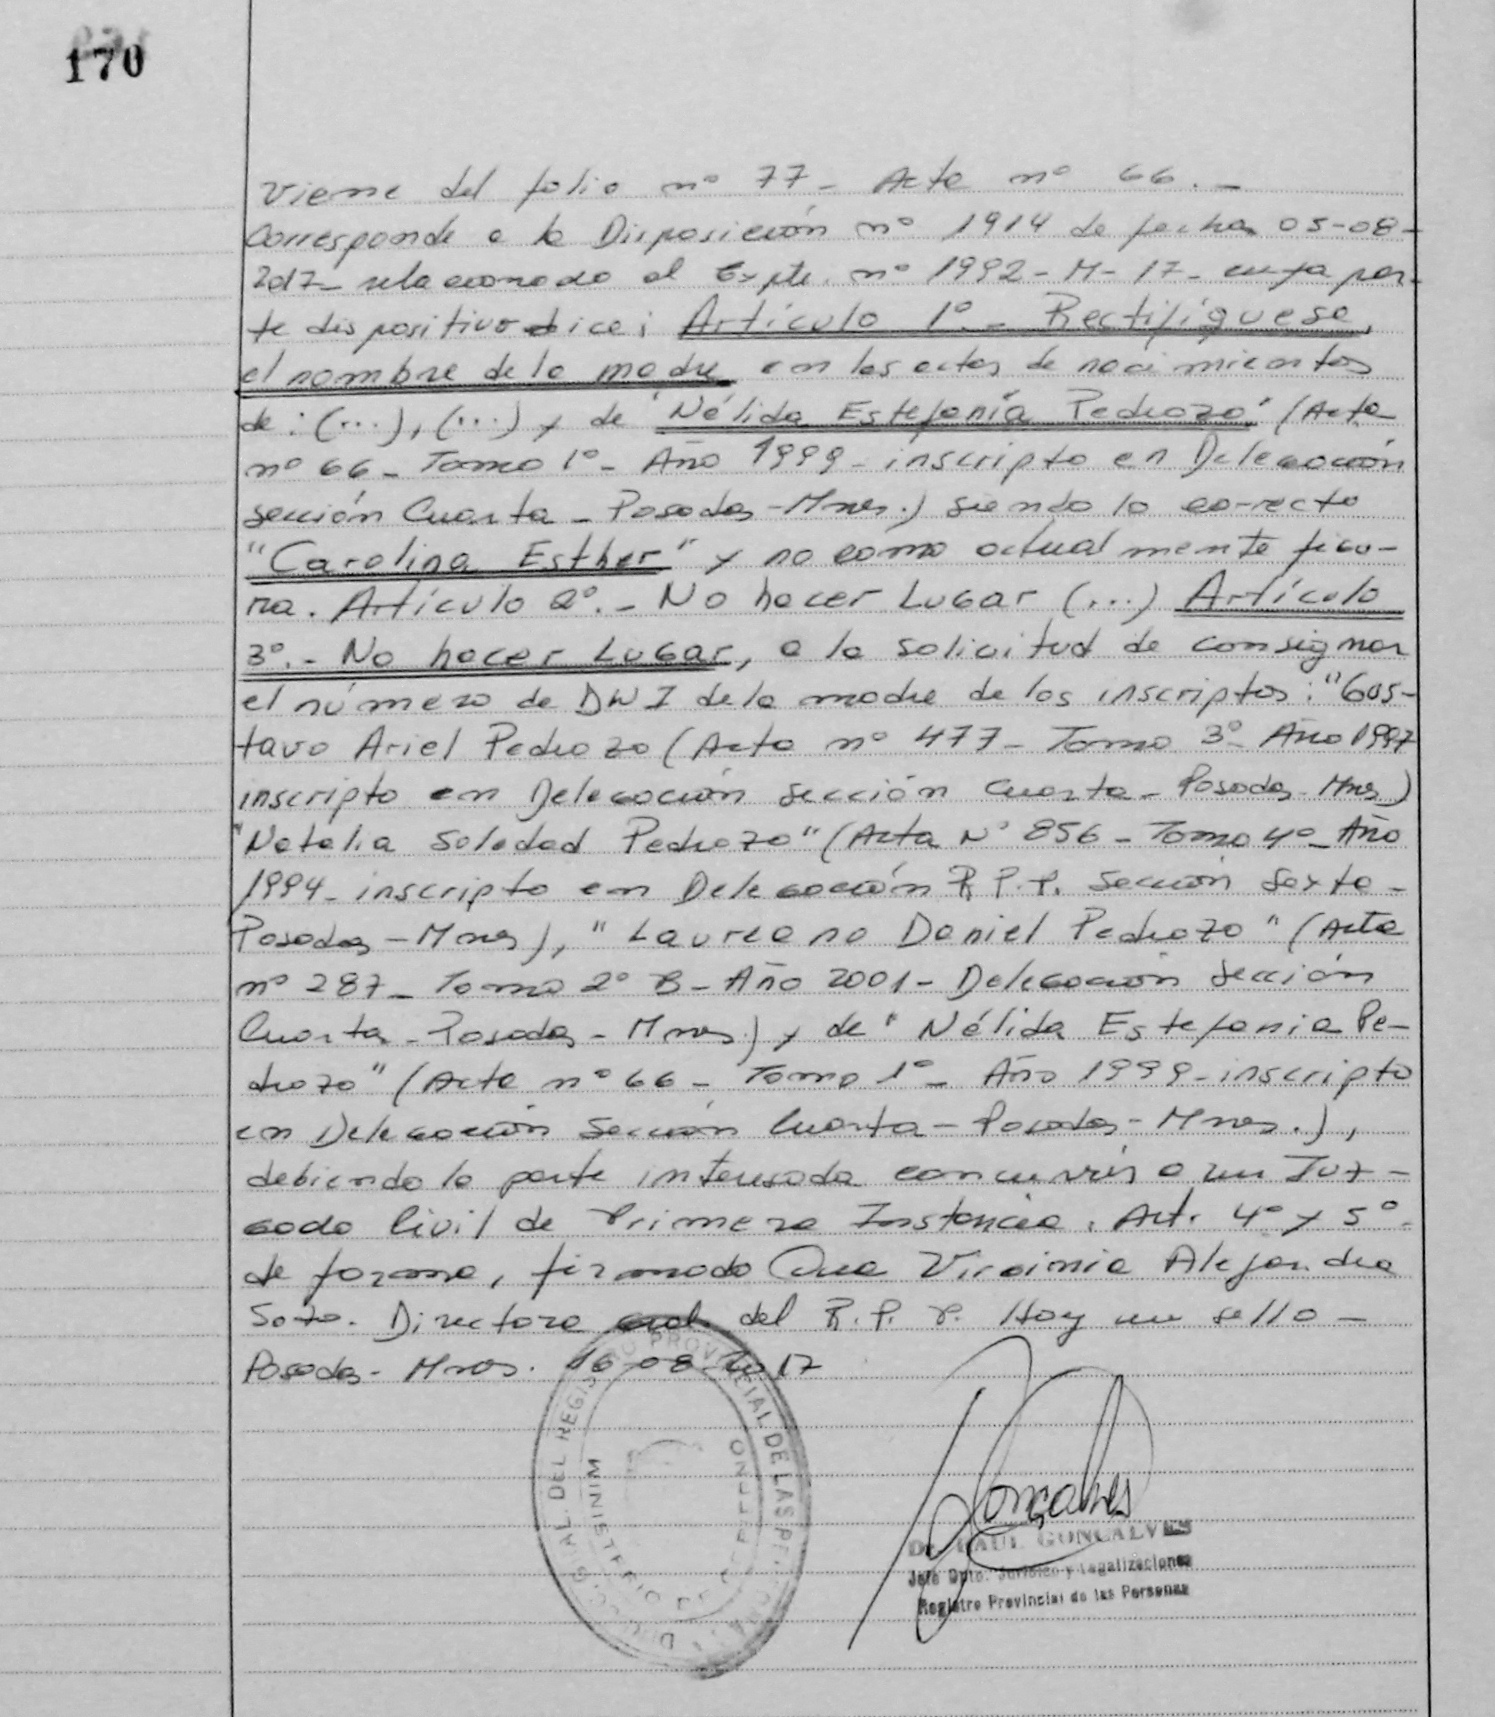 170
Viene del folio nº 77 - Acta nº 66. -
Corresponde a la Disposición nº 1914 de fecha 05-08-
2017- relacionado al Expte. nº 1992-M-17- cuya par-
te dispositiva dice: Artículo 1º.- Rectifíquese,
el nombre de la madre en las actas de nacimientos
de: (...), (...) y de "Nélida Estefanía Pedrozo" (Acta
nº 66 - Tomo 1º - Año 1999 - inscripto en Delegación
sección Cuarta - Posadas - Mnes.) siendo lo correcto
"Carolina Esther" y no como actualmente figu-
ra. Artículo 2º.- No hacer Lugar (...) Artículo
3º.- No hacer Lugar, a la solicitud de consignar
el número de DNI de la madre de los inscriptos: "Gus-
tavo Ariel Pedrozo (Acta nº 477 - Tomo 3º - Año 1997
inscripto en Delegación sección Cuarta - Posadas - Mnes)
"Natalia Soledad Pedrozo" (Acta Nº 856 - Tomo 4º - Año
1994 - inscripto en Delegación R.P.P. Sección Sexta -
Posadas - Mnes), "Laureano Daniel Pedrozo" (Acta
nº 287 - Tomo 2º B - Año 2001 - Delegación Sección
Cuarta - Posadas - Mnes) y de "Nélida Estefania Pe-
drozo" (Acta nº 66 - Tomo 1º - Año 1999 - inscripto
en Delegación Sección Cuarta - Posadas - Mnes.),
debiendo la parte interesada concurrir a un Juz-
gado Civil de Primera Instancia. Art. 4º y 5º.
de forma, firmado Virginia Alejandra
Soto. Directora Gral. del R.P.P. Hay un sello -
Posadas - Mnes. 16-08-2017
DEL REGISTRO PROVINCIAL DE LAS PERSONAS
MINISTERIO DE GOBIERNO
Goncalves
Dr. RAUL GONCALVES
Jefe Dpto. Jurídico y Legalizaciones
Registro Provincial de las Personas